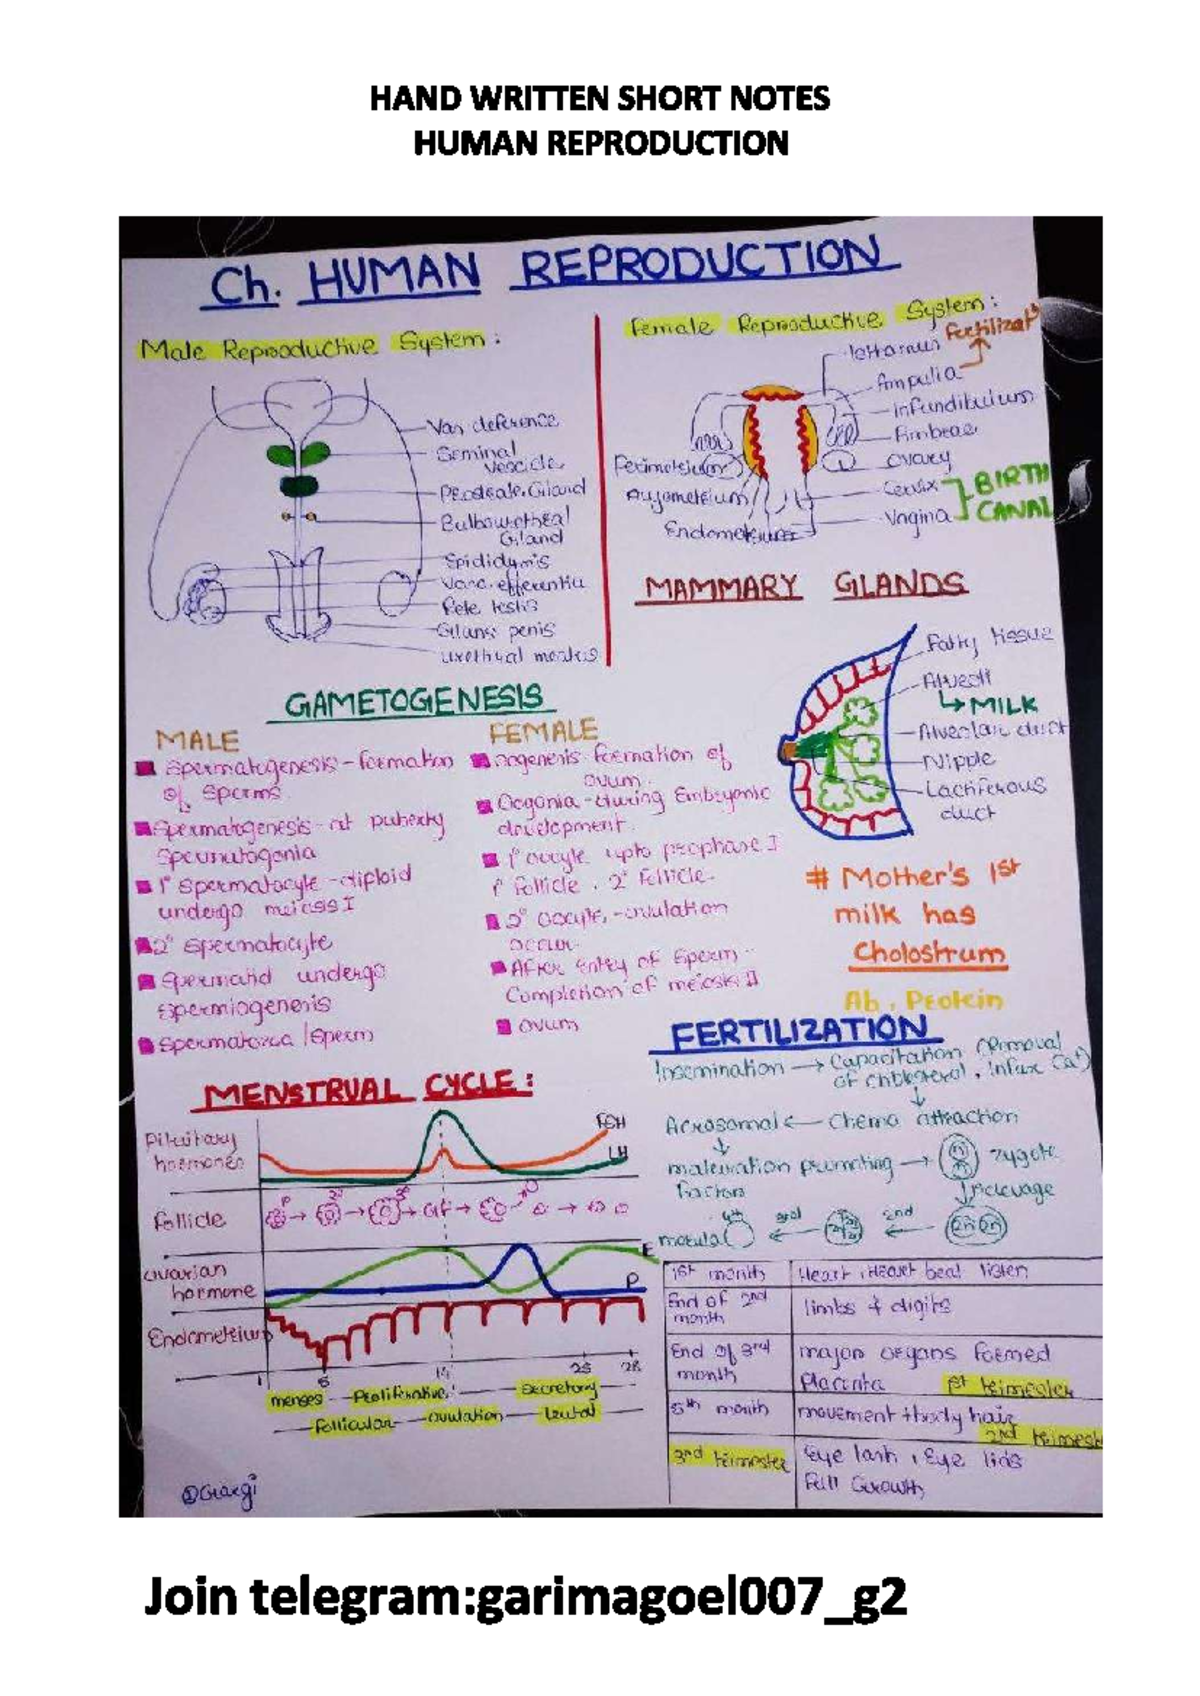 HAND WRITTEN SHORT NOTES
HUMAN REPRODUCTION
Ch. HUMAN REPRODUCTION
Male Reproductive System :
Vas deference
Seminal
vescicle
Prostate Gland
Bulbourethral
Gland
Epididymis
Vasa efferentia
Rete testis
Glans penis
urethral
Female Reproductive System :
Fertilizatn
Ampulla
Infundibulum
Fimbrae
Ovary
Cervix
Vagina
BIRTH
CANAL
Perimetrium
Endometrium
MAMMARY GLANDS
Fatty tissue
Alveoli
↳ MILK
Alveolar duct
Nipple
Lactiferous
duct
# Mother's 1st
milk has
Cholostrum
Ab, Protein
GAMETOGENESIS
MALE
Spermatogenesis - formation
of Sperms
Spermatogenesis - at puberty
Spermatogonia
1° Spermatocyte - diploid
undergo meiosis I
2° Spermatocyte
Spermatid undergo
Spermiogenesis
Spermatozoa / Sperm
FEMALE
oogenesis formation of
ovum.
Oogonia - during Embryonic
development.
1° oocyte upto prophase I
1° follicle, 2° follicle.
2° oocyte, - ovulation
occur
After entry of sperm -
Completion of meiosis II
ovum
FERTILIZATION
Insemination → Capacitation (Removal
of cholesterol, influx Ca+)
↓
Acrosomal ← Chemo attraction
↓
maturation promoting → zygote
factors
↓ cleavage
morula 4th ← 3rd ← 2nd 2n 2n
MENSTRUAL CYCLE :
Pituitary
hormones
FSH
LH
Follicle
P → 2° → 3° → GF →
Ovarian
hormone
E
P
Endometrium
1 5 14 25 28
menses - Proliferative - Secretory
Follicular - ovulation - Luteal
1st month Heart, Heart beat listen
End of 2nd
month limbs & digits
End of 3rd
month major organs formed
Placenta 1st trimester
5th month movement + body hair
2nd trimest
3rd trimester Eye lash, Eye lids
Full Growth
@Gargi
Join telegram:garimagoel007_g2